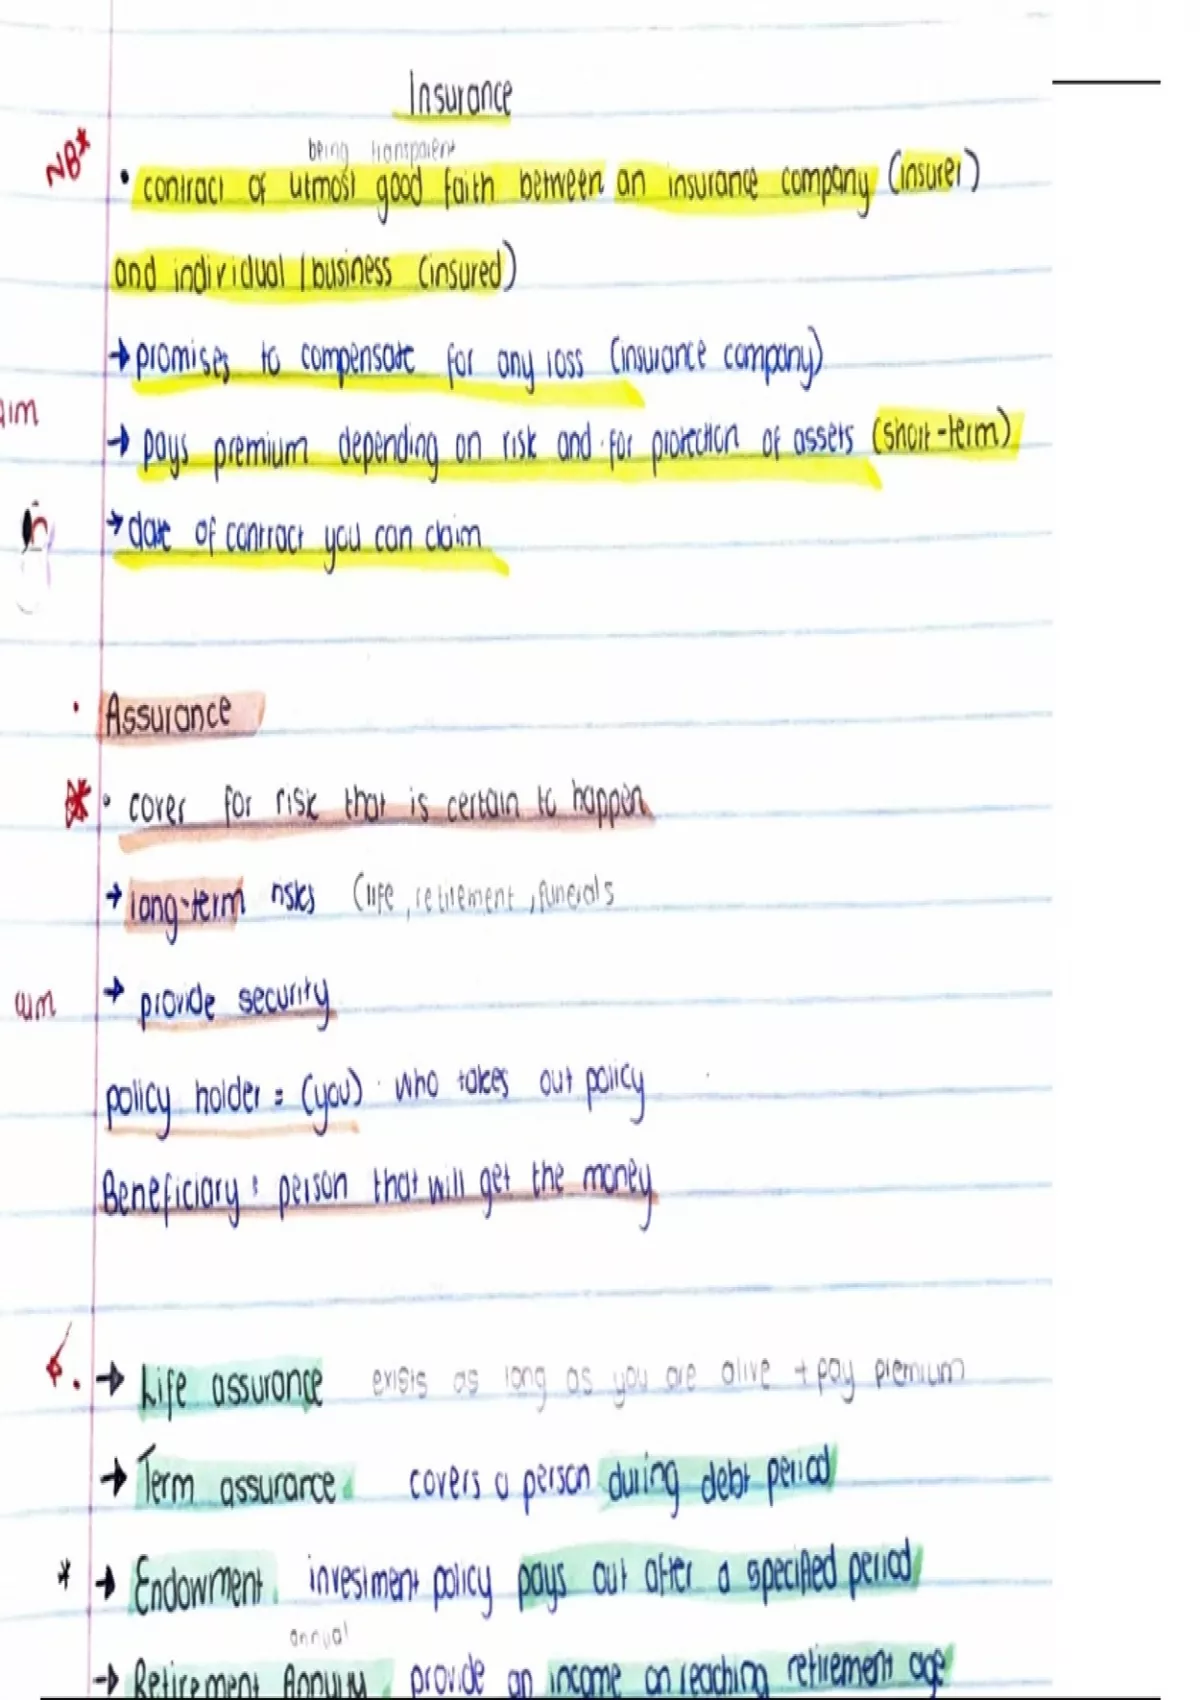 Insurance
being transparent
NB* • contract of utmost good faith between an insurance company (insurer)
and individual / business (insured)
→ promises to compensate for any loss (insurance company)
aim
→ pays premium depending on risk and for protection of assets (short-term)
→ date of contract you can claim
• Assurance
* • cover for risk that is certain to happen
→ long-term risks (life, retirement, funerals
aim → provide security
policy holder = (you) who takes out policy
Beneficiary: person that will get the money
→ Life assurance exists as long as you are alive + pay premium
→ Term assurance covers a person during debt period
* → Endowment investment policy pays out after a specified period
annual
→ Retirement Annuity provide an income on reaching retirement age